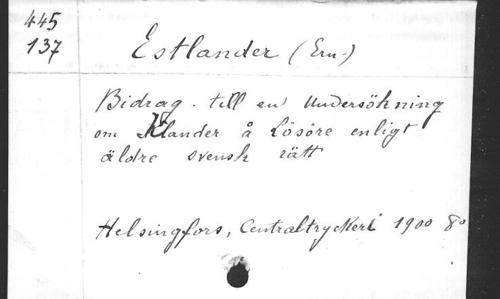 445
137
Estlander (Ern-)
Bidrag. till en Undersökning
om Klander å Lösöre enligt
äldre svensk rätt
Helsingfors, Centraltryckeri 1900 8o